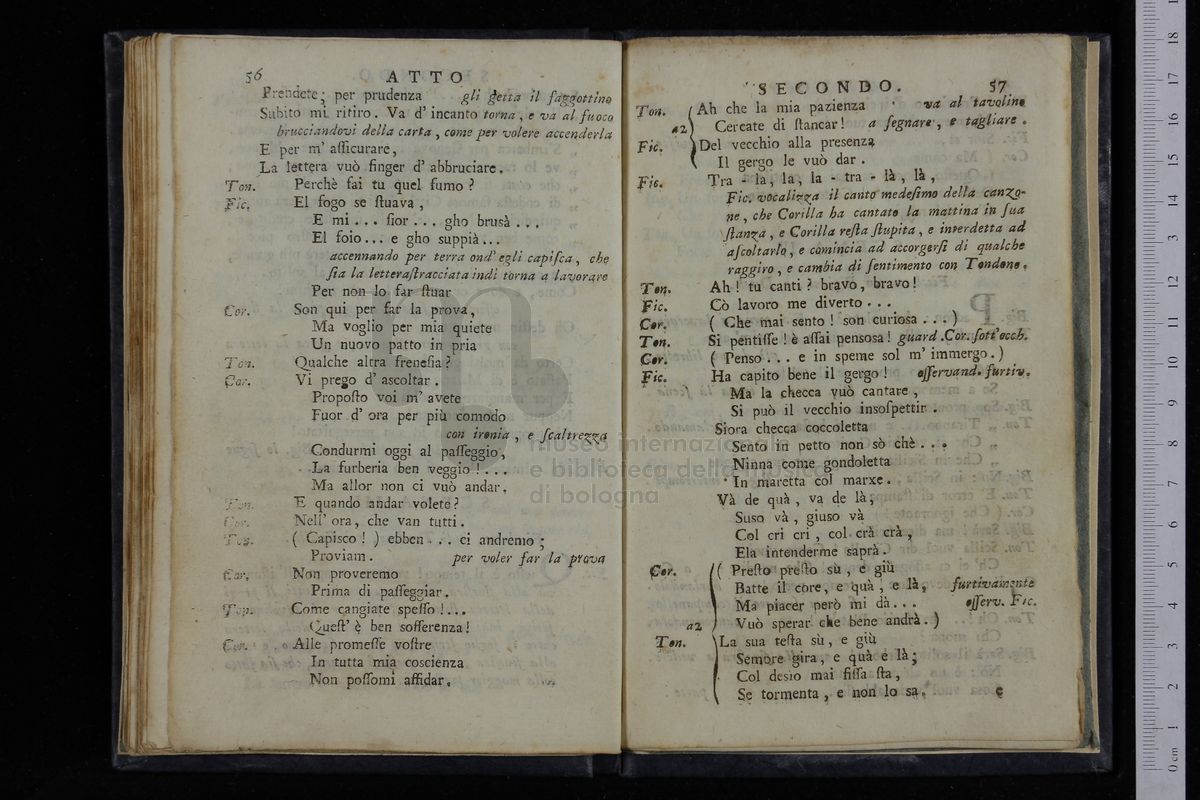 56 ATTO
Prendete; per prudenza gli getta il faggottino
Subito mi ritiro. Va d' incanto torna, e va al fuoco
brucciandovi della carta, come per volere accenderla
E per m' aſſicurare,
La lettera vuò finger d' abbruciare.
Ton. Perchè fai tu quel fumo?
Fic. El fogo se ſtuava,
E mi... ſior... gho brusà...
El foio... e gho suppià...
accennando per terra ond' egli capiſca, che
ſia la letteraſtracciata indi torna a lavorare
Per non lo far ſtuar
Cor. Son qui per far la prova,
Ma voglio per mia quiete
Un nuovo patto in pria
Ton. Qualche altra freneſia?
Cor. Vi prego d' ascoltar.
Propoſto voi m' avete
Fuor d' ora per più comodo
con ironia, e ſcaltrezza
Condurmi oggi al paſſeggio,
La furberia ben veggio!...
Ma allor non ci vuò andar.
Ton. E quando andar volete?
Cor. Nell' ora, che van tutti.
Ton. (Capisco!) ebben... ci andremo;
Proviam. per voler far la prova
Cor. Non proveremo
Prima di paſſeggiar.
Ton. Come cangiate speſſo!...
Queſt' è ben sofferenza!
Cor. Alle promeſſe voſtre
In tutta mia coscienza
Non poſſomi affidar.
SECONDO. 57
Ton. Ah che la mia pazienza va al tavolino
a2 Cercate di ſtancar! a ſegnare, e tagliare.
Fic. Del vecchio alla presenza
Il gergo le vuò dar.
Fic. Tra - la, la, la - tra - là, là,
Fic. vocalizza il canto medeſimo della canzo-
ne, che Corilla ha cantato la mattina in ſua
ſtanza, e Corilla reſta ſtupita, e interdetta ad
aſcoltarlo, e comincia ad accorgerſi di qualche
raggiro, e cambia di ſentimento con Tondone.
Ton. Ah! tu canti? bravo, bravo!
Fic. Cò lavoro me diverto...
Cor. (Che mai sento! son curiosa...)
Ton. Si pentiſſe! è aſſai pensosa! guard. Cor. ſott'occh.
Cor. (Penso... e in speme sol m' immergo.)
Fic. Ha capito bene il gergo! oſſervand. furtiv.
Ma la checca vuò cantare,
Si può il vecchio insoſpettir.
Siora checca coccoletta
Sento in petto non sò chè...
Ninna come gondoletta
In maretta col marxe.
Và de quà, va de là,
Suso và, giuso và
Col cri cri, col crà crà,
Ela intenderme saprà.
Cor. (Preſto preſto sù, e giù
Batte il core, e quà, e là, furtivamente
Ma piacer però mi dà... oſſerv. Fic.
a2 Vuò sperar che bene andrà.)
Ton. La sua teſta sù, e giù
Sempre gira, e quà e là;
Col desio mai fiſſa ſta,
Se tormenta, e non lo sa.
e
museo internazionale
e biblioteca della musica
di bologna
0 cm 1 2 3 4 5 6 7 8 9 10 11 12 13 14 15 16 17 18